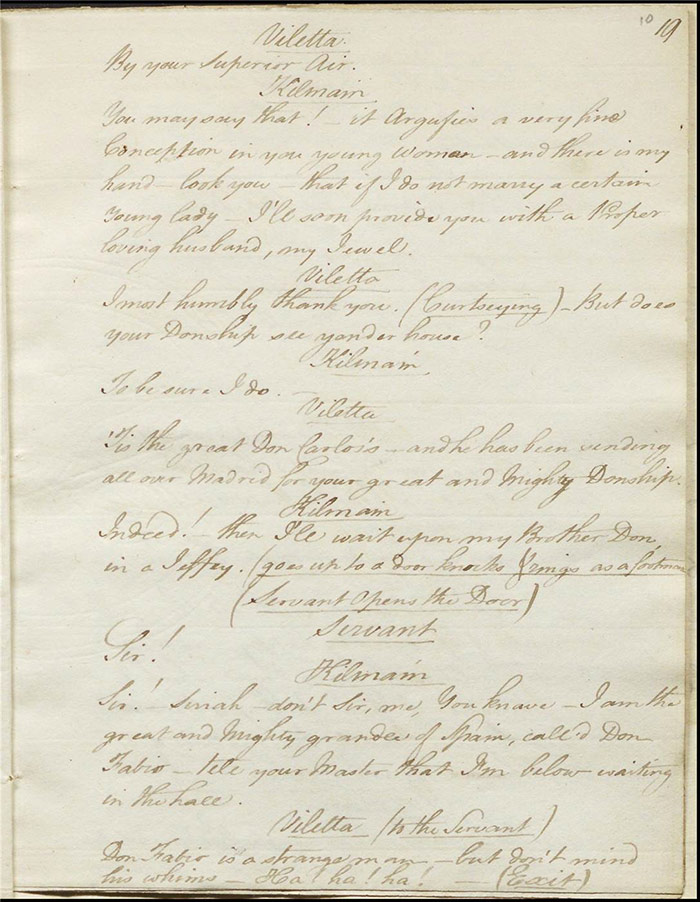 10 19
Viletta.
By your Superior Air.
Kilmain
You may say that! – it Argufies a very fine
Conception in you young woman – and there is my
hand – look you – that if I do not marry a certain
Young lady – I'll soon provide you with a Proper
loving husband, my Jewel.
Viletta
I most humbly thank you. (Curtseying) – But does
your Donship see yonder house?
Kilmain
To be sure I do. –
Viletta
'Tis the great Don Carlos's – and he has been sending
all over Madrid for your great and Mighty Donship.
Kilmain
Indeed! – then I'll wait upon my Brother Don,
in a Jeffey. (goes up to a door knocks & rings as a footman
(Servant opens the Door)
Servant
Sir!
Kilmain
Sir! – Sirrah – don't Sir, me, You knave – I am the
great and Mighty grandee of Spain, call'd Don
Fabio – tell your Master that I'm below waiting
in the hall.
Viletta (to the Servant)
Don Fabio is a strange man – but don't mind
his whims – Ha! ha! ha! – (Exit)